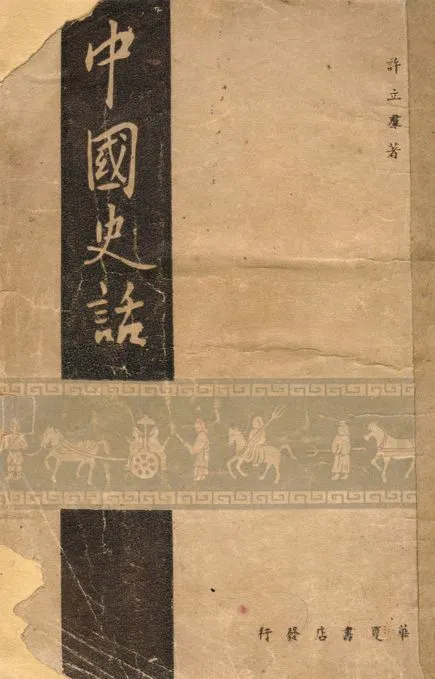 許立羣著
中國史話
華夏書店發行